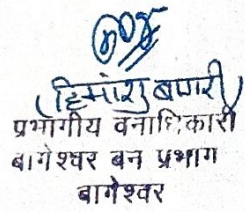 (हिमांशु बागरी)
प्रभागीय वनाधिकारी
बागेश्वर बन प्रभाग
बागेश्वर